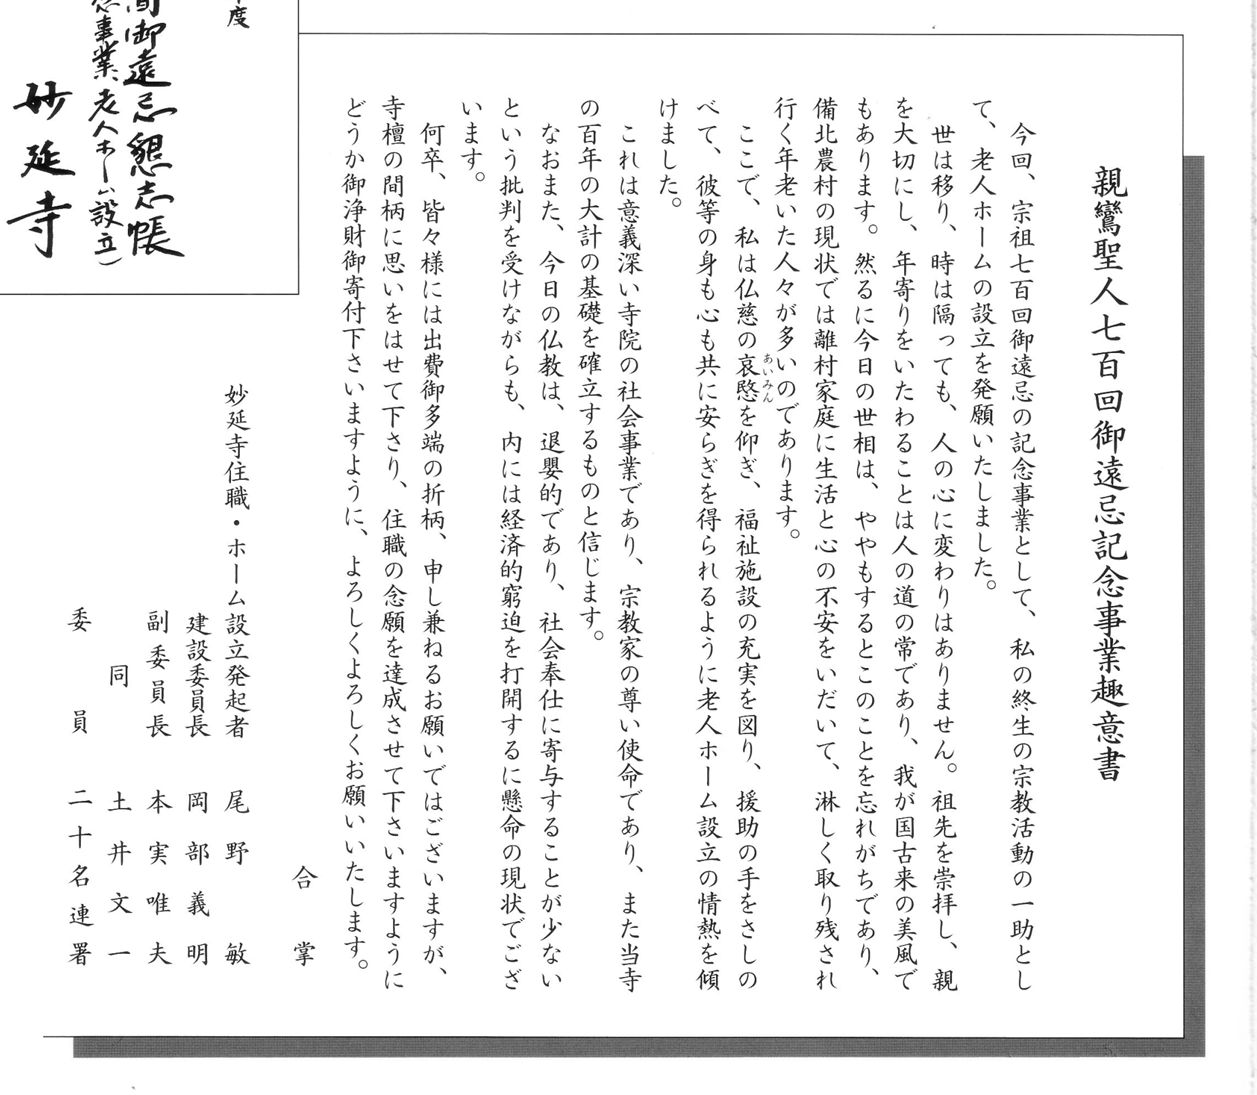 親鸞聖人七百回御遠忌記念事業趣意書
今回、宗祖七百回御遠忌の記念事業として、私の終生の宗教活動の一助とし
て、老人ホームの設立を発願いたしました。
世は移り、時は隔っても、人の心に変わりはありません。祖先を崇拝し、親
を大切にし、年寄りをいたわることは人の道の常であり、我が国古来の美風で
もあります。然るに今日の世相は、ややもするとこのことを忘れがちであり、
備北農村の現状では離村家庭に生活と心の不安をいだいて、淋しく取り残され
行く年老いた人々が多いのであります。
ここで、私は仏慈の哀愍を仰ぎ、福祉施設の充実を図り、援助の手をさしの
あいみん
べて、彼等の身も心も共に安らぎを得られるように老人ホーム設立の情熱を傾
けました。
これは意義深い寺院の社会事業であり、宗教家の尊い使命であり、また当寺
の百年の大計の基礎を確立するものと信じます。
なおまた、今日の仏教は、退嬰的であり、社会奉仕に寄与することが少ない
という批判を受けながらも、内には経済的窮迫を打開するに懸命の現状でござ
います。
何卒、皆々様には出費御多端の折柄、申し兼ねるお願いではございますが、
寺檀の間柄に思いをはせて下さり、住職の念願を達成させて下さいますように
どうか御浄財御寄付下さいますように、よろしくよろしくお願いいたします。
合掌
妙延寺住職・ホーム設立発起者 尾野 敏
建設委員長 岡部義明
副委員長 本実唯夫
同 土井文一
委員 二十名連署
度
間御遠忌懇志帳
念事業、老人ホーム設立）
妙延寺